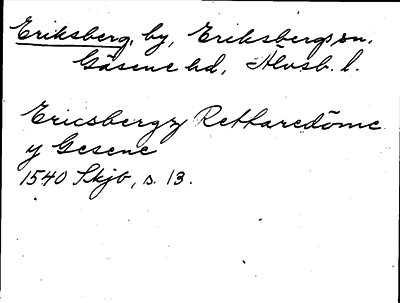 Eriksberg, by, Eriksbergs sn.
Gäsene hd, Älvsb. l.
Ericsbergz Retharedöme
y Gesene
1540 Skjb, s. 13.